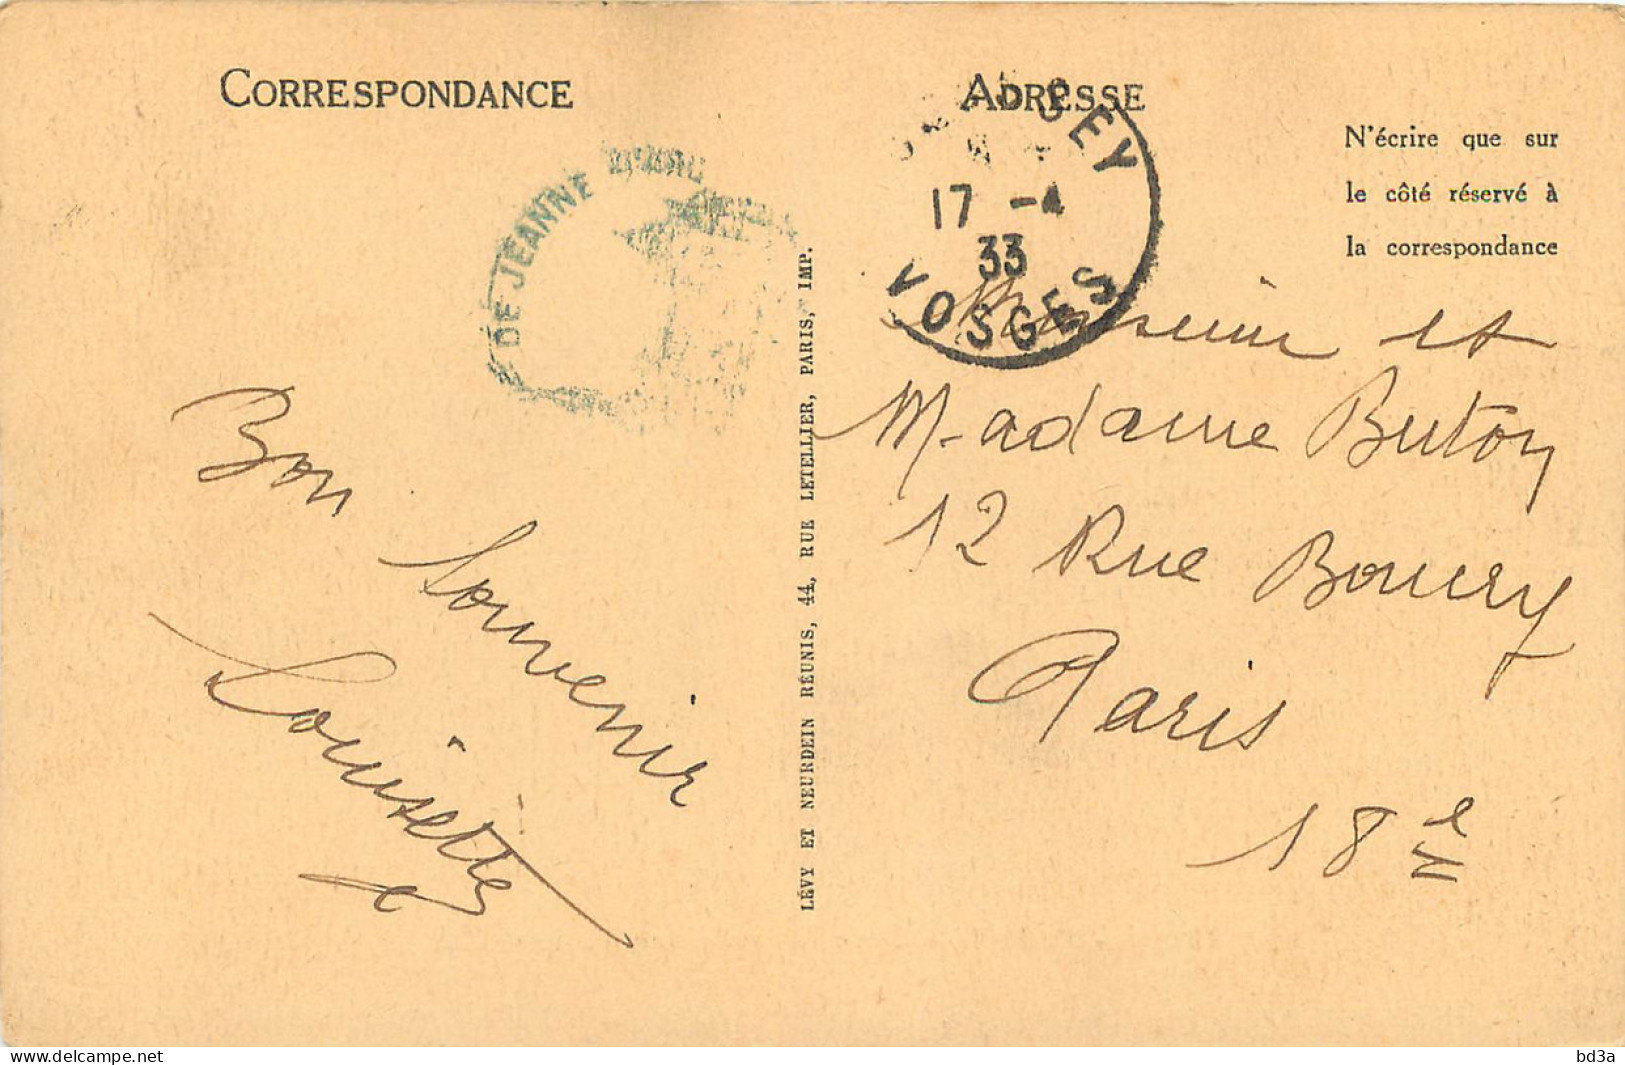 CORRESPONDANCE
ADRESSE
N'écrire que sur
le côté réservé à
la correspondance
DE JEANNE D'ARC
17 -4
33
VOSGES
LÉVY ET NEURDEIN RÉUNIS, 44, RUE LETELLIER, PARIS, IMP.
Bon
Souvenir
Louisette
Monsieur et
Madame Buton
12 Rue Boucry
Paris
18e
delcampe.net
bd3a